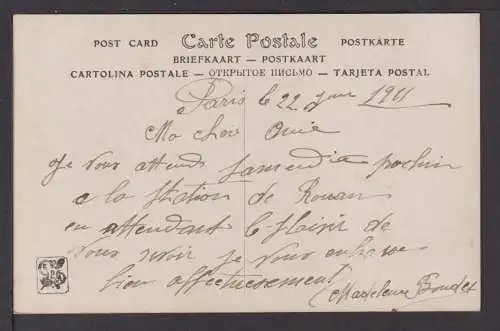 POST CARD Carte Postale POSTKARTE
BRIEFKAART — POSTKAART
CARTOLINA POSTALE — ОТКРЫТОЕ ПИСЬМО — TARJETA POSTAL
Paris le 22 1911
Ma Chère Amie
Je vous attend samendie prochin
a la station de Rouan
en attendant le plaisir de
vous revoir je vous embrasse
bien affectueusement
Madeleine